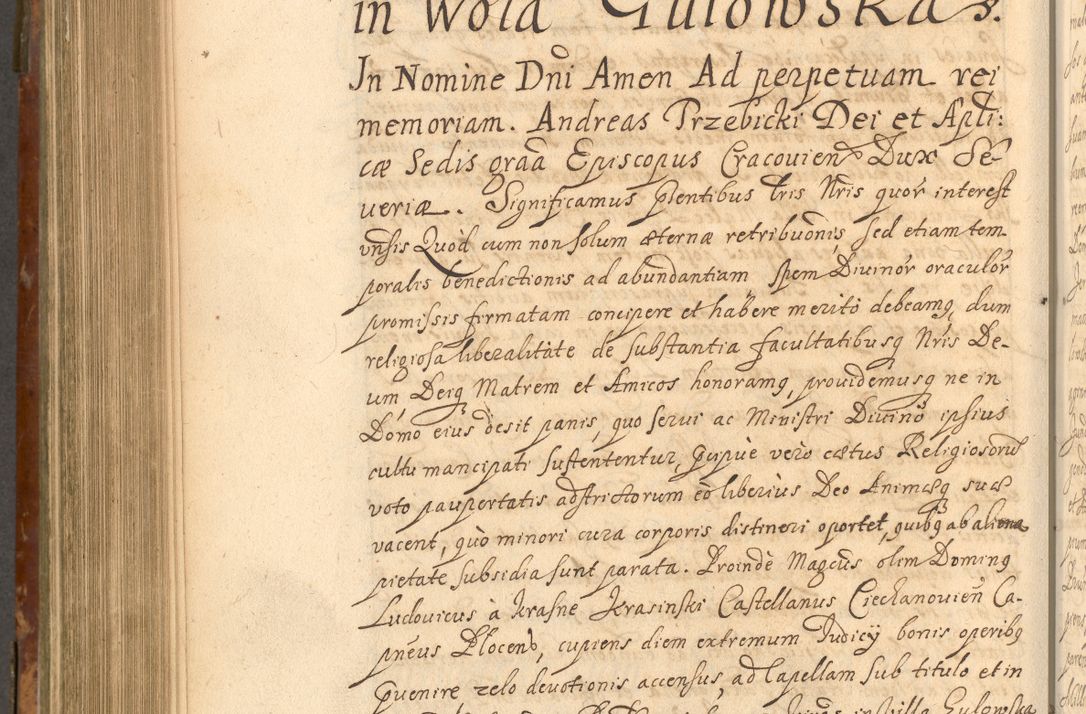 in Wola Gulowska.
Jn Nomine Dni Amen Ad perpetuam rei
memoriam. Andreas Trzebicki Dei et Apli:
cæ Sedis graã Episcopus Cracovien Dux Se-
veriæ. Significamus pñtibus lris Nris quor interest
vnsis Quòd cum non solum æternæ retribuonis, sed etiam tem
poralis benedictionis ad abundantiam spem Divinor oraculor
promissis firmatam concipere et habere meritò debeamq, dum
religiosa liberalitate de substantia facultatibusq Nris De-
um, Deiq Matrem et Amicos honoramq, providemusq ne in
Domo eius desit panis, quo servi ac Ministri Divino ipsius
cultu mancipati sustententur, pcipuè verò cætus Religiosorũ
voto paupertatis adstrictorum eò liberius Deo Animæq suæ
vacent, quò minori cura corporis distineri oportet, quibq ab aliena
pietate subsidia sunt parata. Proindè Magcus olim Dominq
Ludovicus à Krasne Krasinski Castellanus Ciechanovien Ca-
pneus Plocen, cupiens diem extremum Judicij bonis operibq
pvenire zelo devotionis accensus, ad Capellam sub titulo et in
in villa Gulowska